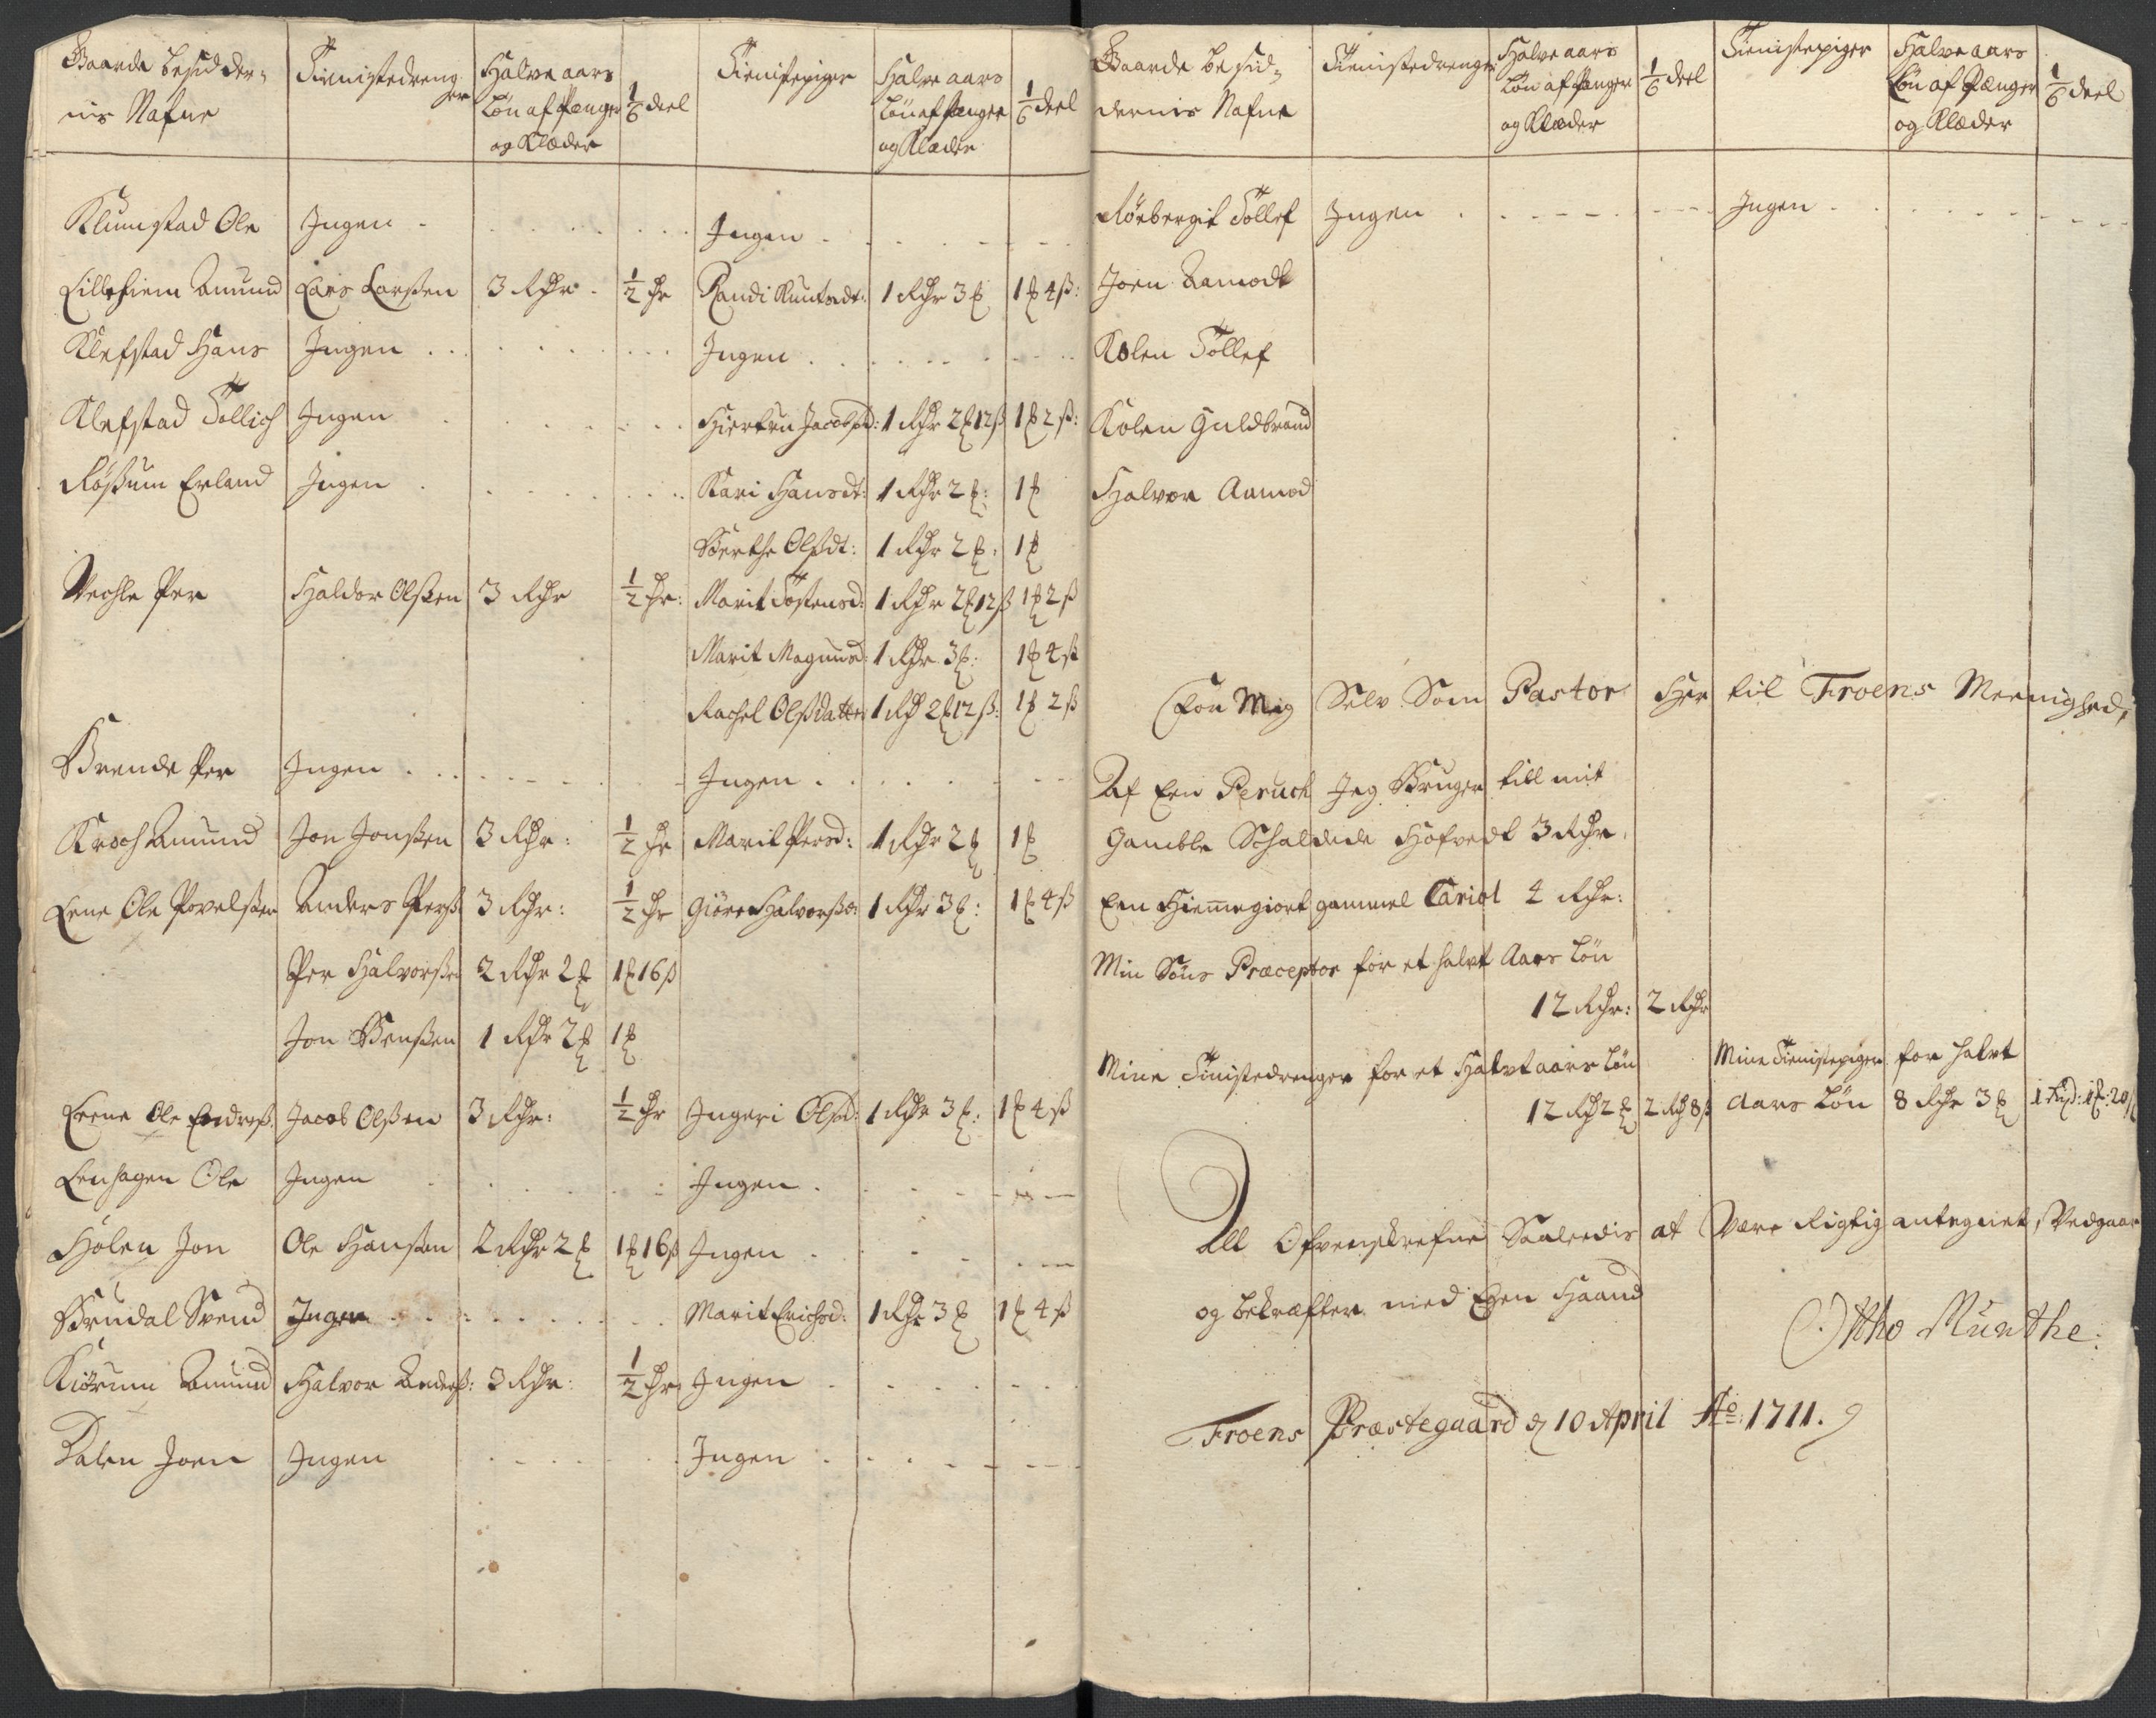 Gaarde besidder=
nis Nafne
Tienistedreng
er
Halve aars
Løn af Penger
og Klæder
1/6 deel
Tienistepiger
Halve aars
Løn af Penger
og Klæder
1/6 deel
Klumstad Ole Ingen Ingen
Lillehiem Amund Lars Larßen 3 Rdr 1/2 dr Randi Knutsdt: 1 Rdr 3 ȝ 1 ȝ 4 ß:
Klefstad Hans Ingen Ingen
Klefstad Tollich Ingen Jacobsd: 1 Rdr 2 ȝ 12 ß 1 ȝ 2 ß:
Røßum Erland Ingen Kari Hansdt: 1 Rdr 2 ȝ: 1 ȝ
Berthe Olßdt: 1 Rdr 2 ȝ: 1 ȝ
Vechle Per Haldor Olßen 3 Rdr 1/2 dr: Marit Tostensd: 1 Rdr 2 ȝ 12 ß 1 ȝ 2 ß
Marit Magnusd: 1 Rdr 3 ȝ: 1 ȝ 4 ß
Rachel Olßdatter 1 Rd 2 ȝ 12 ß: 1 ȝ 2 ß
Brende Per Ingen Ingen
Kroch Amund Jon Jonßen 3 Rdr: 1/2 dr Marit Persd: 1 Rdr 2 ȝ 1 ȝ
Lene Ole Povelßen Anders Perß 3 Rdr: 1/2 dr Giøre Halvorßd: 1 Rdr 3 ȝ: 1 ȝ 4 ß
Per Halvorßen 2 Rdr 2 ȝ 1 ȝ 16 ß
Jon Benßen 1 Rdr 2 ȝ 1 ȝ
Leene Ole Endreß. Jacob Olßen 3 Rdr: 1/2 dr Ingeri Olßd: 1 Rdr 3 ȝ: 1 ȝ 4 ß
Lenhagen Ole Ingen Ingen
Holen Jon Ole Hanßen 2 Rdr 2 ȝ 1 ȝ 16 ß Ingen
Brudal Svend Ingen Marit Erichsd: 1 Rdr 3 ȝ 1 ȝ 4 ß
Kiørum Amund Halvor Anderß: 3 Rdr: 1/2 dr Ingen
Dalen Joen Ingen Ingen
Gaarde besid=
dernis Nafne
Tienistedrenger
Halve aars
Løn af Penger
og Klæder
1/6 deel
Tienistepiger
Halve aars
Løn af Penger
og Klæder
1/6 deel
Tollef Ingen Ingen
Joen Aamodt
Kolen Tollef
Kolen Guldbrand
Halvor Aamod
For Mig Selv Som Pastor Her til Froens Meenighed,
Af Een Peruch Jeg Bruger till mit
Gamble Schaldede Hofvedt 3 Rdr.
Een Hiemmegiort gammel Cariol 4 Rdr:
Min Søns Præceptor for et halvt Aars Løn
12 Rdr: 2 Rdr
Mine Tinistedrenger for et Halvt aars Løn
12 Rd 2 ȝ 2 Rd 8 ß
Mine Tienistepiger for halvt
Aars Løn 8 Rdr 3 ȝ 1 Rd: 1 ȝ: 20 ß
All Ofvenskrefne Saaledis at Være Rigtig antegnet, Vedgaar
og bekræfter med Egen Haand
Otho Munthe.
Froens Præstegaard d 10 April Ao: 1711.